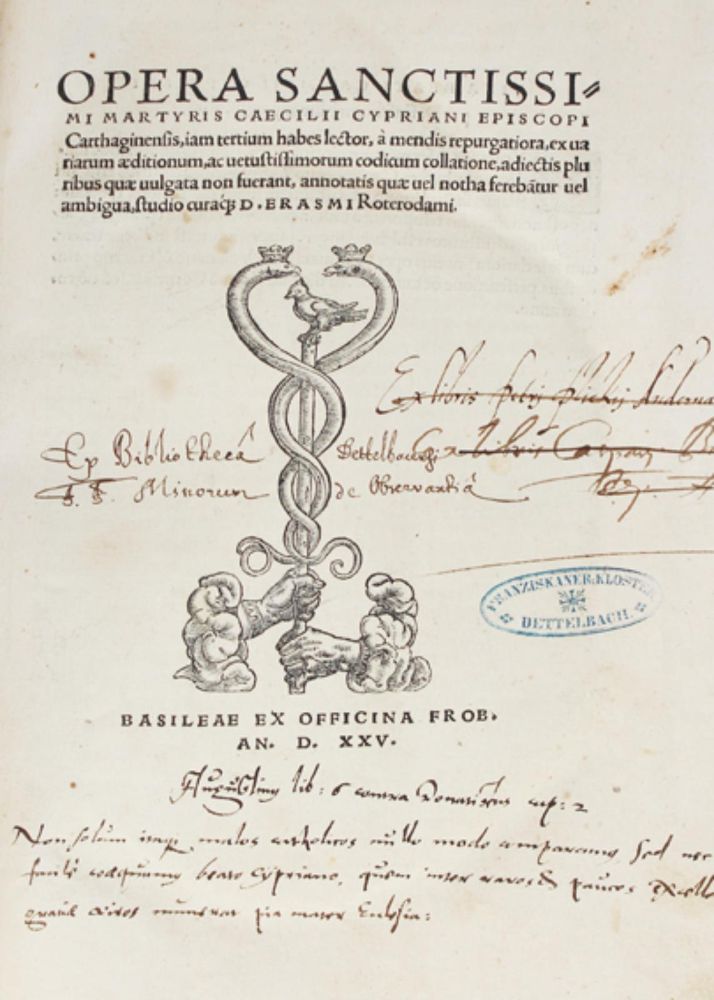 OPERA SANCTISSI⸗
MI MARTYRIS CAECILII CYPRIANI EPISCOPI
Carthaginensis, iam tertium habes lector, à mendis repurgatiora, ex ua
riarum æditionum, ac uetustissimorum codicum collatione, adiectis plu
ribus quæ uulgata non fuerant, annotatis quæ uel notha ferebãtur uel
ambigua, studio curaq; D. ERASMI Roterodami.
Ex libris petri
Ex Bibliothecâ Dettelbac
Ex libris Caspari
F. F. Minorum de Observantiâ
FRANZISKANER-KLOSTER
DETTELBACH.
BASILEAE EX OFFICINA FROB.
AN. D. XXV.
Augustinus lib: 6 contra Donatistas cap: 2
Non solum itaq malos catholicos nullo modo comparamus sed nec
beato Cypriano, quem inter raros & paucos
numerat pia mater Ecclesia: